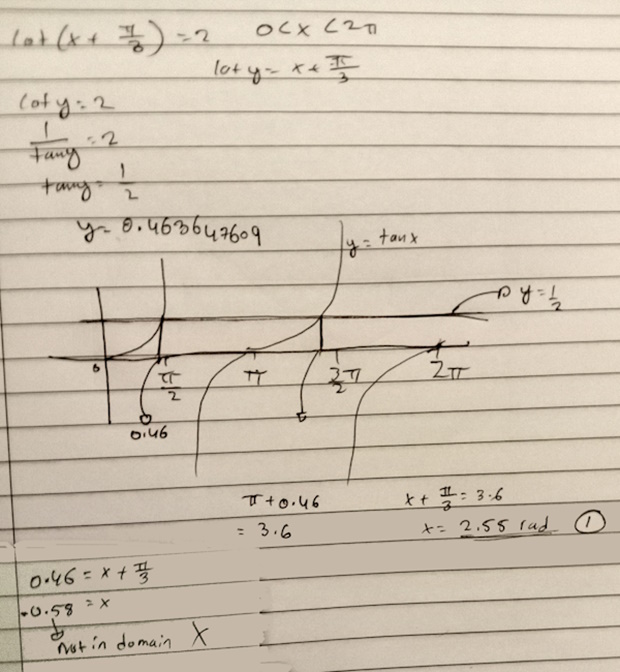 cot (x + π/3) = 2 0 < x < 2π
let y = x + π/3
cot y = 2
1/tan y = 2
tan y = 1/2
y = 0.463647609
y = tan x
y = 1/2
0 π/2 π 3/2 π 2π
0.46
π + 0.46 x + π/3 = 3.6
= 3.6 x = 2.55 rad ①
0.46 = x + π/3
-0.58 = x
Not in domain X